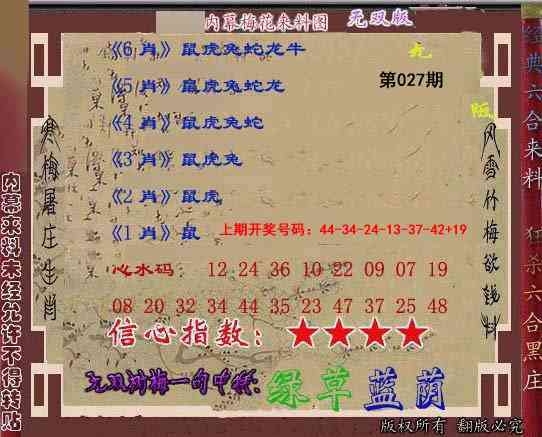 内幕梅花来料图 无双版
《6 肖》鼠虎兔蛇龙牛
《5 肖》鼠虎兔蛇龙
《4 肖》鼠虎兔蛇
《3 肖》鼠虎兔
《2 肖》鼠虎
《1 肖》鼠
第027期
上期开奖号码：44-34-24-13-37-42+19
心水码： 12 24 36 10 22 09 07 19
08 20 32 34 44 35 23 47 37 25 48
信心指数：★★★★
绿草蓝荫
寒梅屠庄生肖
风雪竹梅欲钱料
内幕来料未经允许不得转贴
经典六合来料
狂杀六合黑庄
版权所有 翻版必究